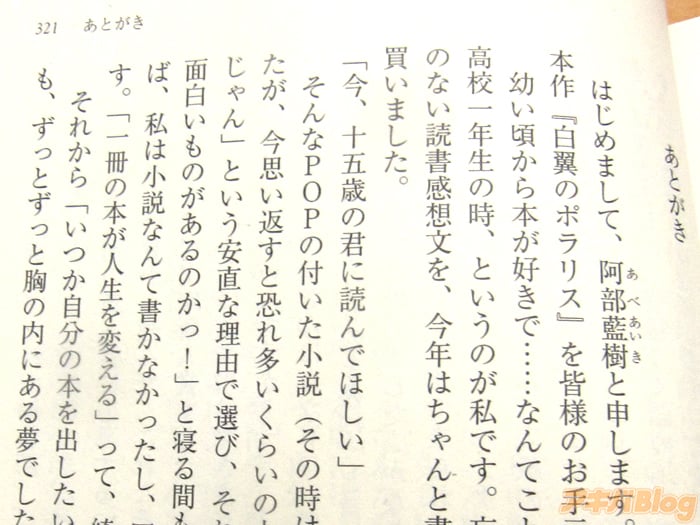 321 あとがき
あとがき
はじめまして、阿部藍樹と申します。
本作『白翼のポラリス』を皆様のお手
幼い頃から本が好きで……なんてこと
高校一年生の時、というのが私です。
のない読書感想文を、今年はちゃんと書
買いました。
「今、十五歳の君に読んでほしい」
そんなPOPの付いた小説（その時は
たが、今思い返すと恐れ多いくらいの
じゃん」という安直な理由で選び、それ
面白いものがあるのかっ！」と寝る間も
ば、私は小説なんて書かなかったし、
す。「一冊の本が人生を変える」って、
それから「いつか自分の本を出したい
も、ずっとずっと胸の内にある夢でした
チキガBlog